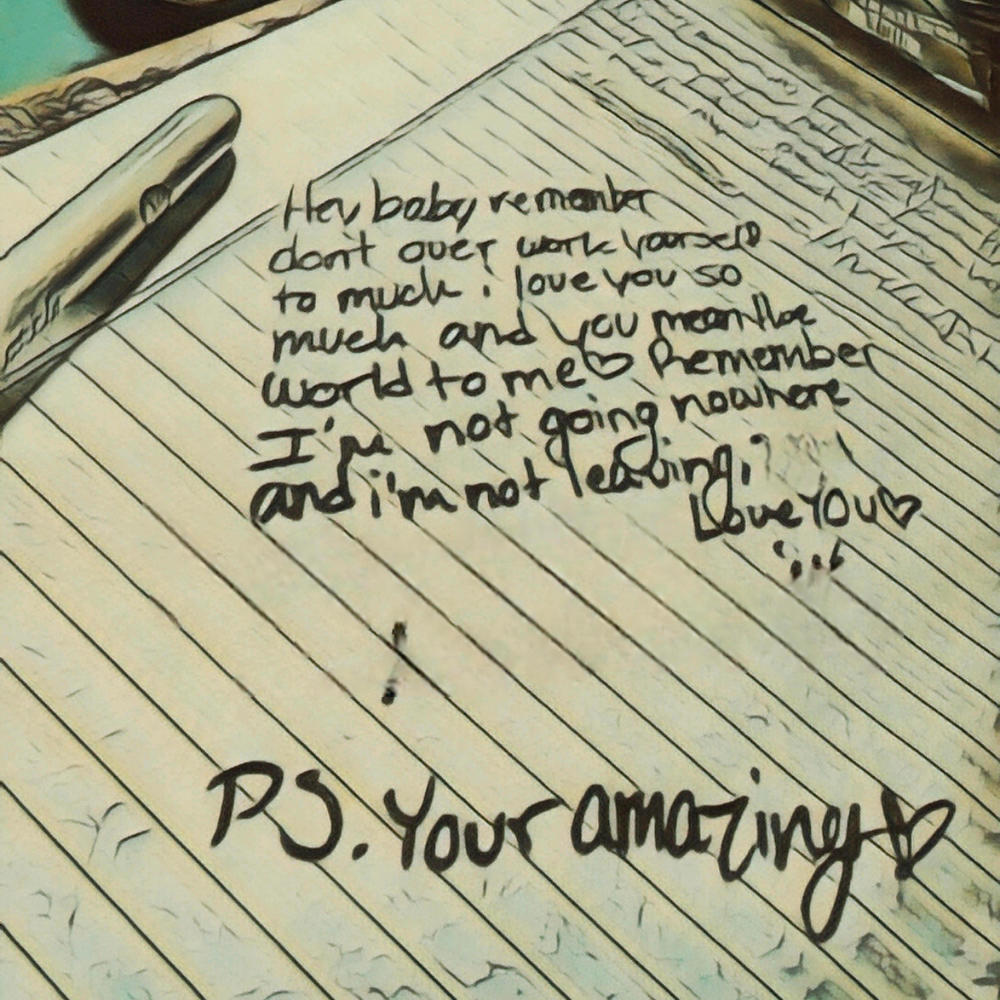 Hey baby remember
dont over work yourself
to much. i love you so
much and you mean the
world to me♡ Remember
I'm not going nowhere
and i'm not leaving.
Love YOU♡
PS. Your amazing♡